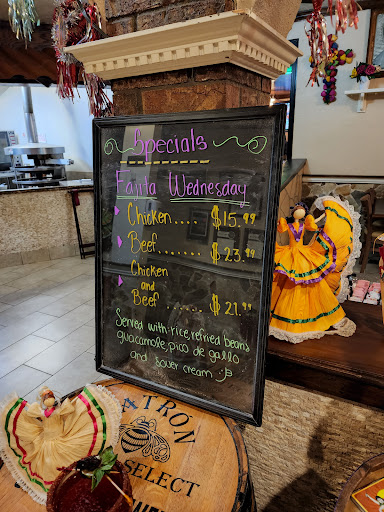 Specials
Fajita Wednesday
Chicken.... $15.99
Beef....... $23.99
Chicken
and
Beef ...... $21.99
Served with: rice, refried beans
guacamole, pico de gallo
and souer cream :)
PATRÓN
SELECT